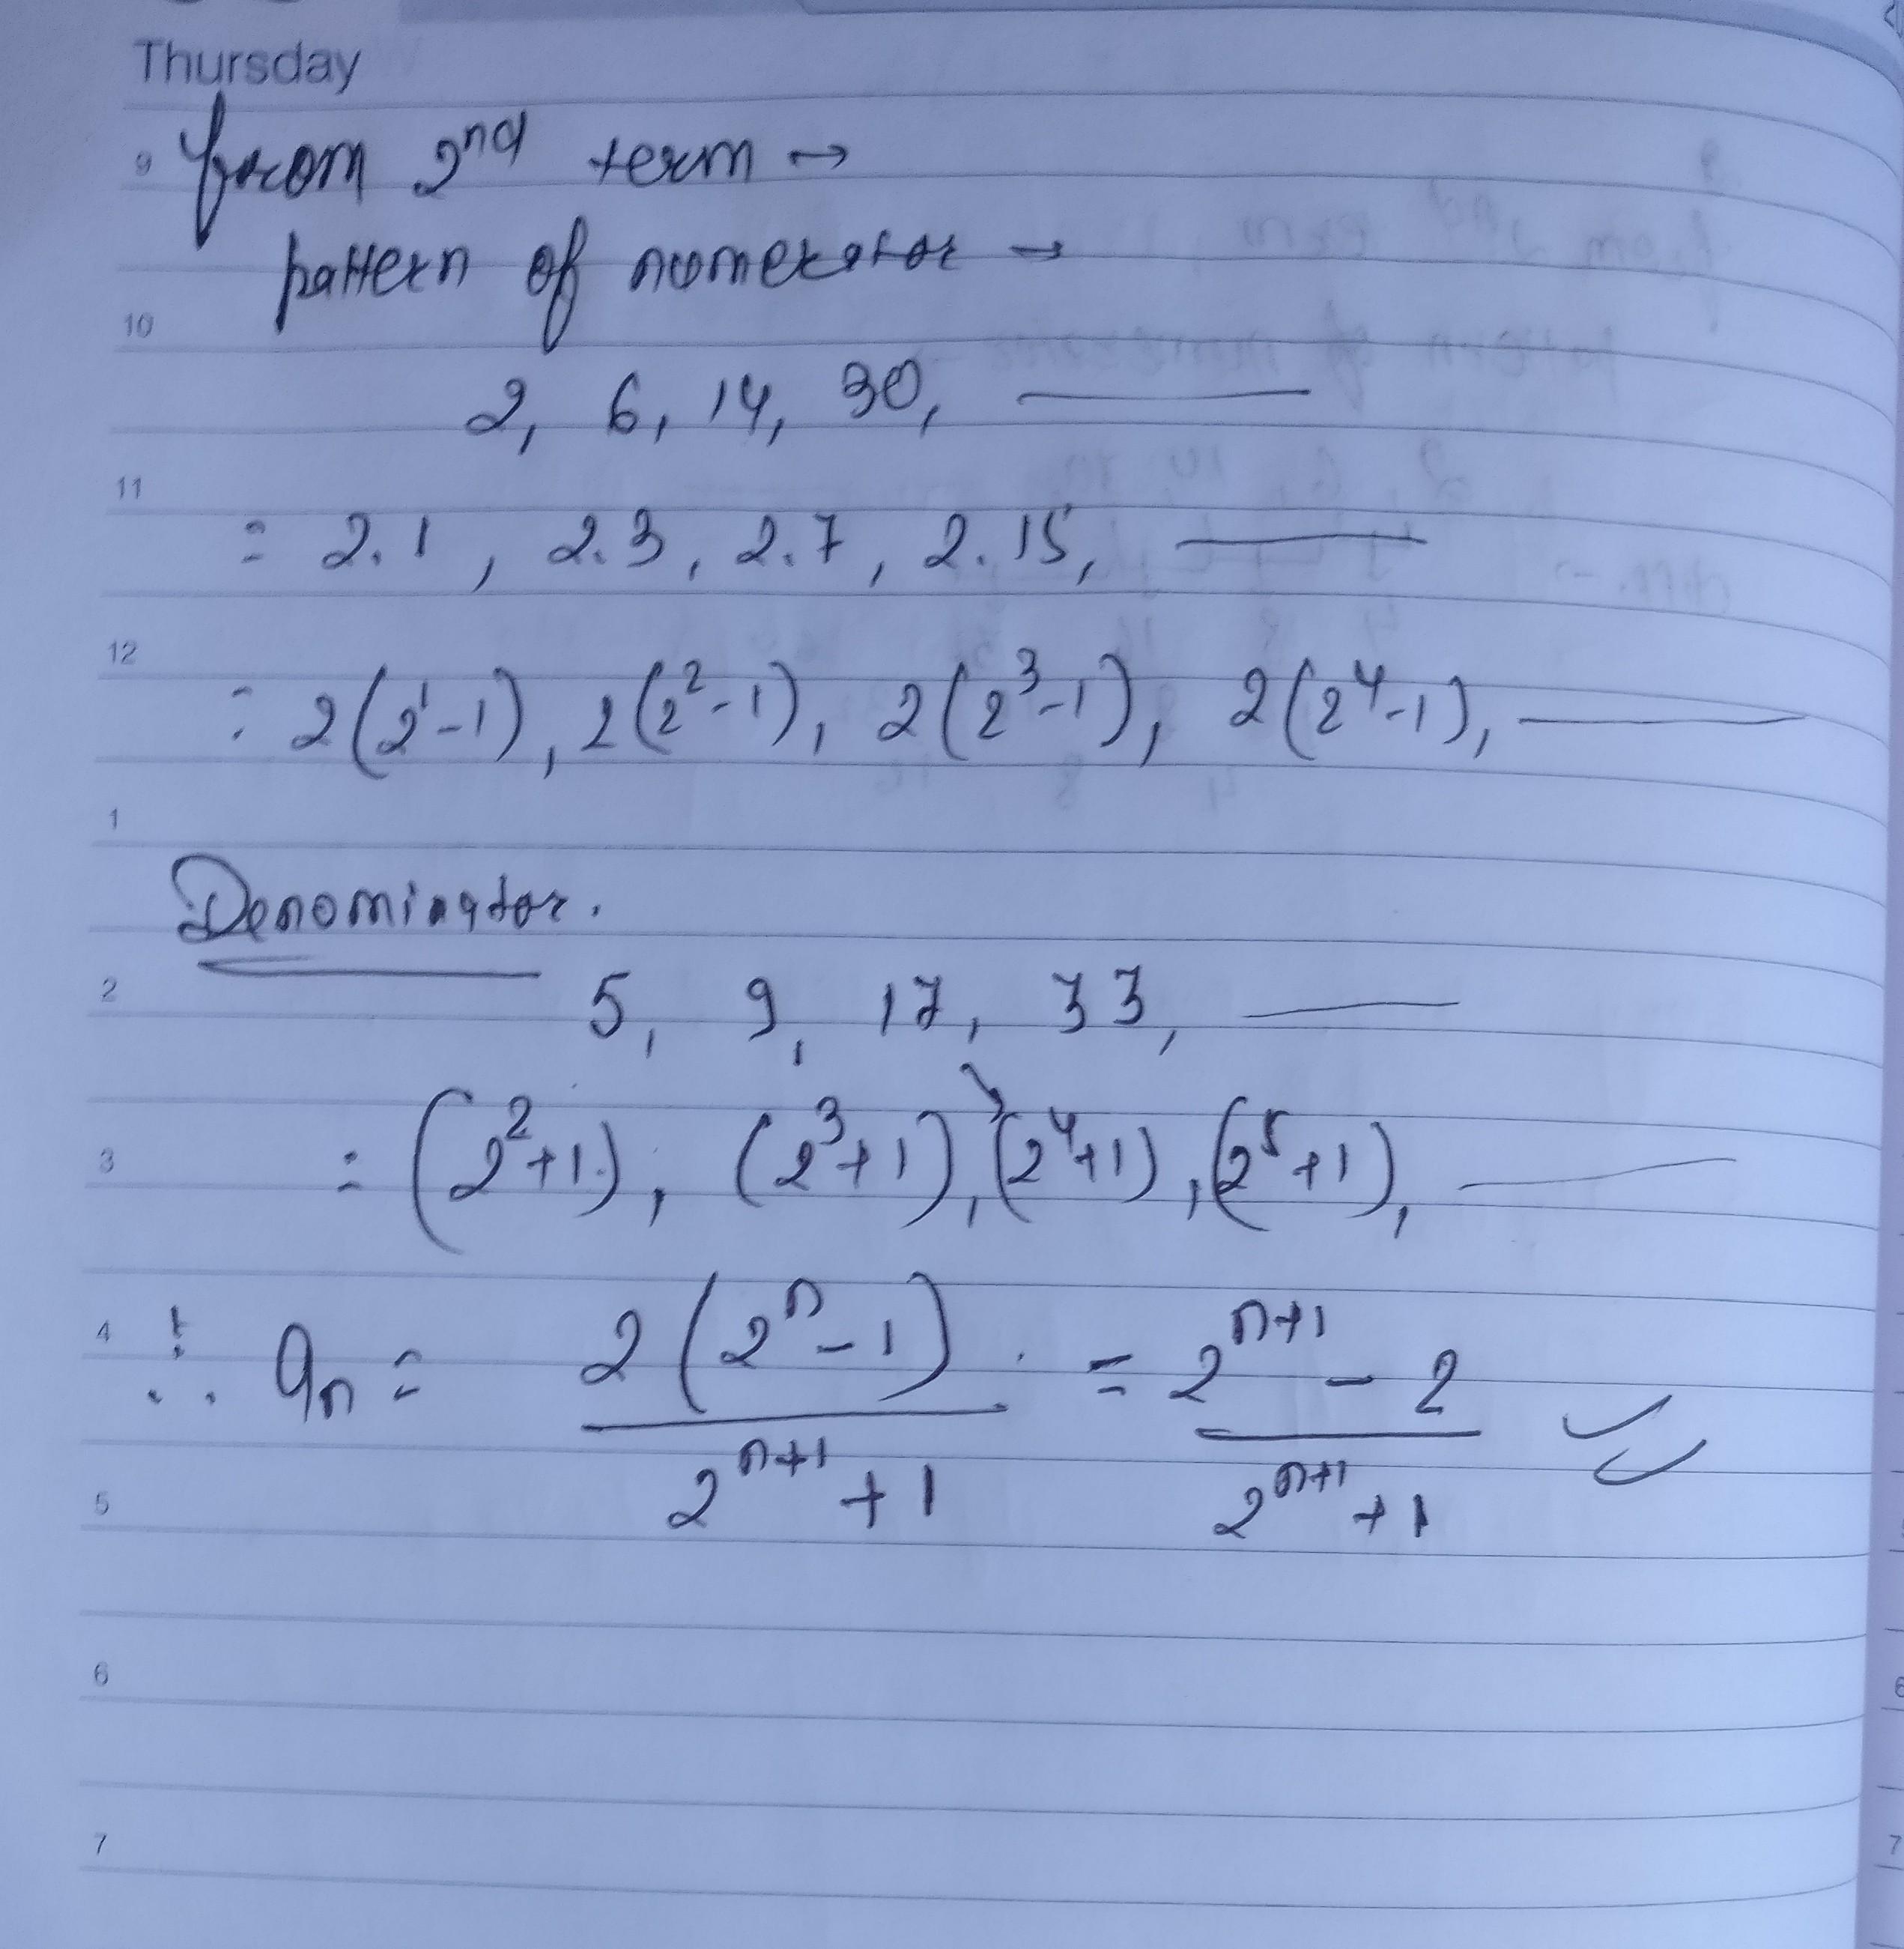 Thursday
9 from 2nd term →
pattern of numerator →
10
2, 6, 14, 30, ———
11
= 2.1, 2.3, 2.7, 2.15, ———
12
= 2(2^1-1), 2(2^2-1), 2(2^3-1), 2(2^4-1), ———
1
Denominator.
2 5, 9, 17, 33, ———
3 = (2^2+1), (2^3+1), (2^4+1), (2^5+1), ———
4 ∴ a_n = 2(2^n-1) / 2^{n+1}+1 = 2^{n+1} - 2 / 2^{n+1}+1
5
6
6
7
7